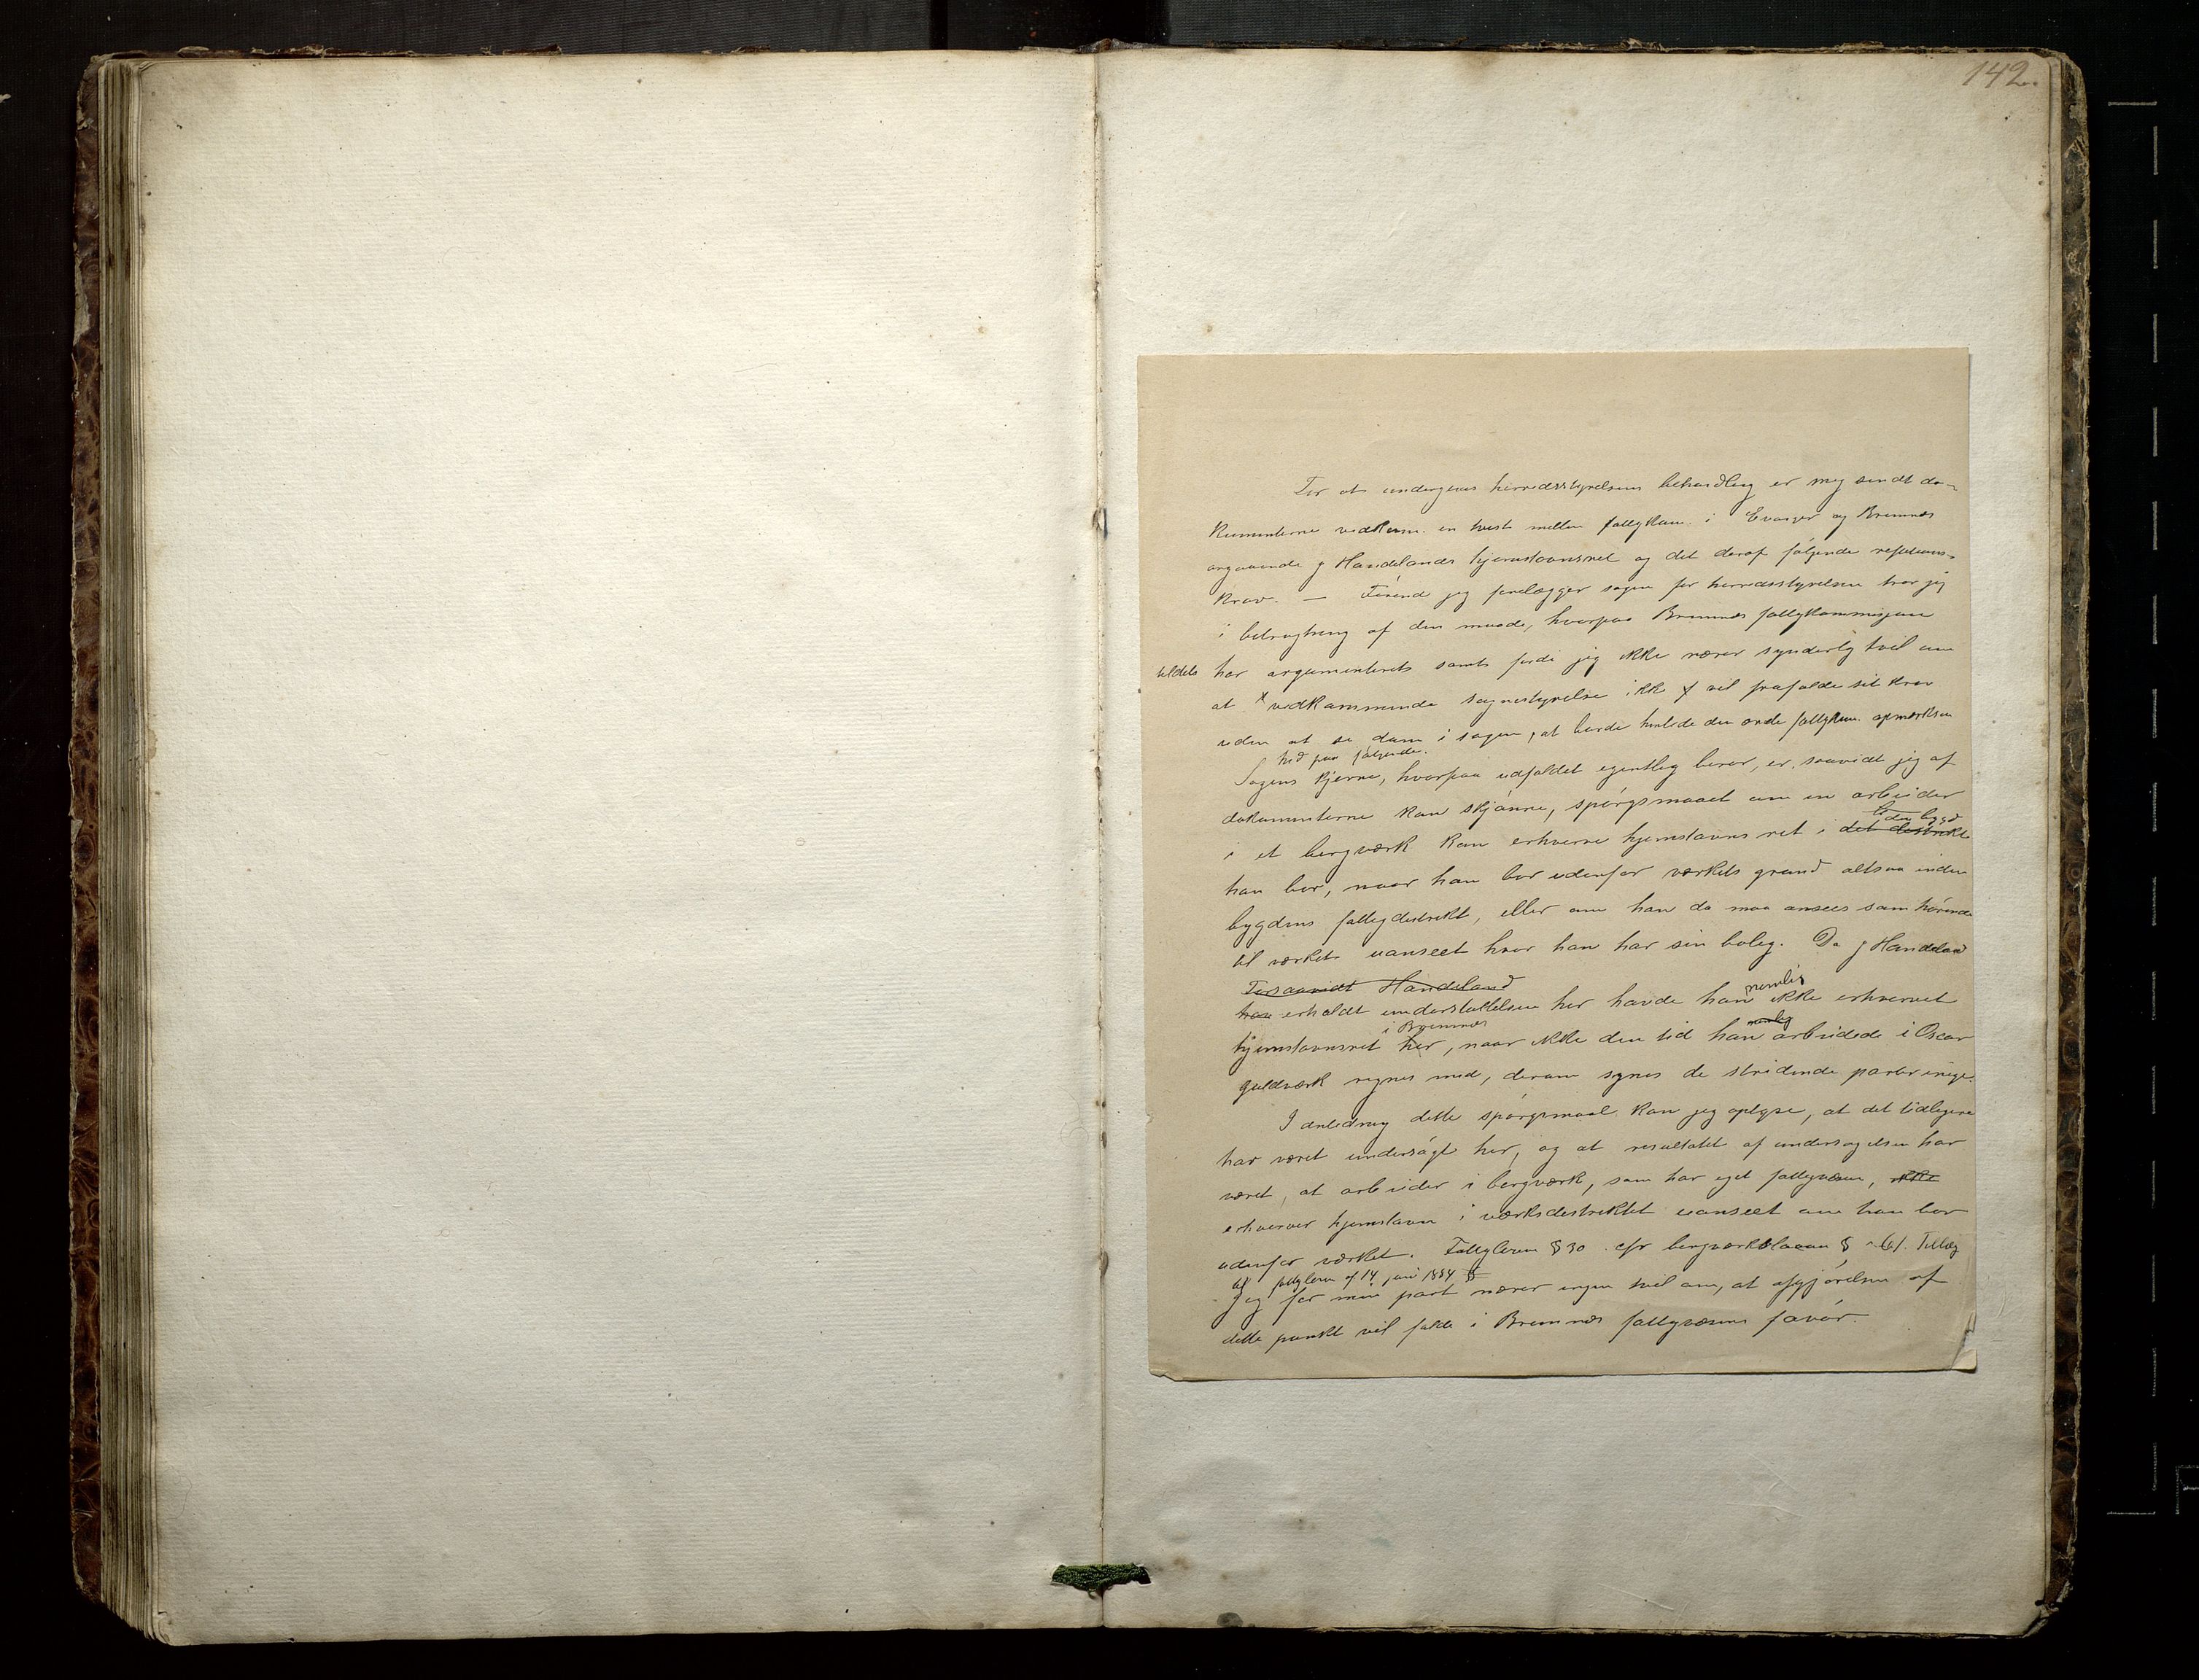 142.
For at undergives herredsstyrelsens behandling er mig sendt do-
kumenterne vedkom. en tvist mellem fattigkom. i Evanger og Bremnes
angaaende J Handelands hjemstavnsret og det deraf følgende refusions-
krav. — Førend jeg forelægger sagen for herredsstyrelsen tror jeg
i betragtning af den maade, hvorpaa Bremnes fattigkommisjon
tildels har argumenteret samt fordi jeg ikke nærer synderlig tvil om
at x vedkommende sognestyrelse ikke vil frafalde sit krav
uden at se dom i sagen, at burde henlede den ærede fattigkom. opmærksom
hed paa følgende.
Sagens kjerne, hvorpaa udfaldet egentlig beror, er, saavidt jeg af
dokumenterne kan skjønne, spørgsmaalet om en arbeider
den bygd
i et bergværk kan erhverve hjemstavns ret i det distrikt
han bor, naar han bor udenfor værkets grund altsaa inden
bygdens fattigdistrikt, eller om han da maa ansees som hørende
til værket uanseet hvor han har sin bolig. Da J Handeland
Forsaavidt Handeland
nemlig
han erholdt understøttelsen her havde han ikke erhvervet
i Bremnes nemlig
hjemstavnsret her, naar ikke den tid han arbeidede i Oscar
guldværk regnes med, derom synes de stridende parter enige.
I anledning dette spørgsmaal kan jeg oplyse, at det tidligere
har været undersøgt her, og at resultatet af undersøgelsen har
været, at arbeider i bergværk, som har eget fattigvæsen, ikke
erhverver hjemstavn i værksdistriktet uanseet om han bor
udenfor værket. Fattigloven § 30 cfr bergværksloven § 61. Tillæg
til fattigloven af 14 juni 1884 §
Jeg for min part nærer ingen tvil om, at afgjørelsen af
dette punkt vil falde i Bremnes fattigvæsens favør.